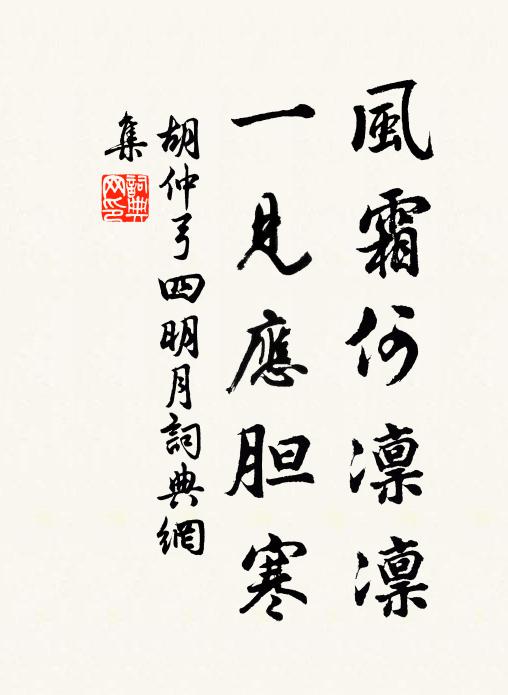 風霜何凜凜
一見應胆寒
胡仲弓四明月詞典網
集
詞典
网印